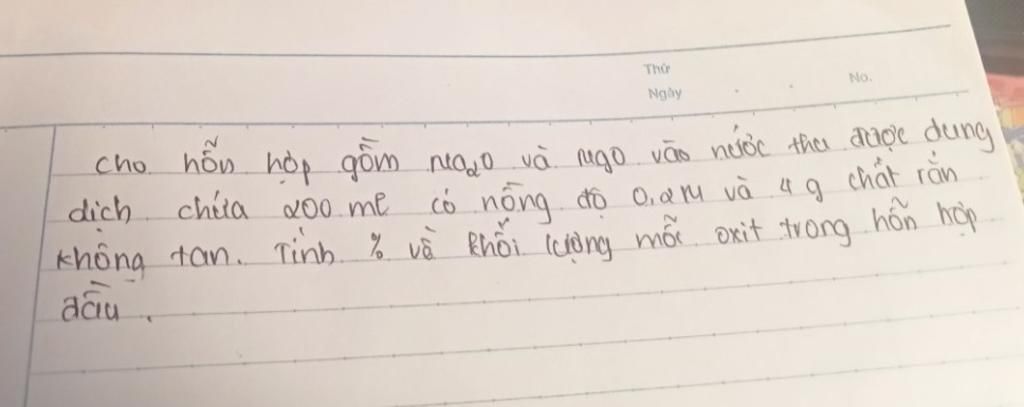 Thứ
Ngày
No.
Cho hỗn hợp gồm Na2O và MgO vào nước thu được dung
dịch chứa 200 ml có nồng độ 0,2M và 4g chất rắn
không tan. Tính % về khối lượng mỗi oxit trong hỗn hợp
đầu.